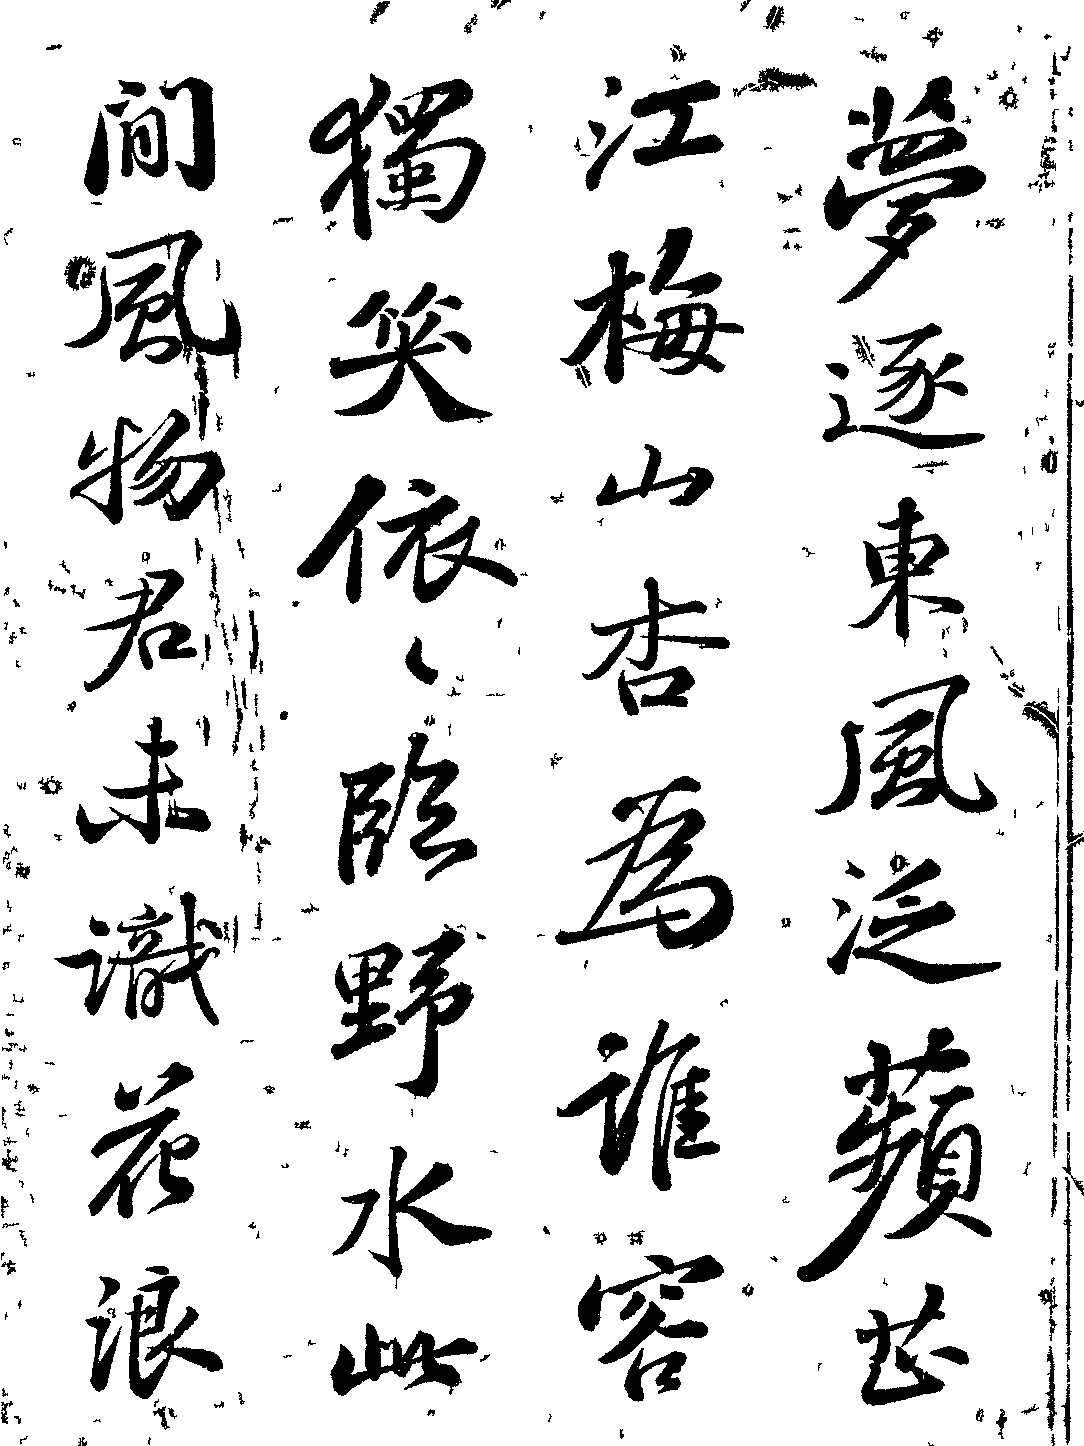 夢逐東風泛蘋芷
江梅山杏為誰容
獨笑依〻臨野水此
間風物君未識花浪